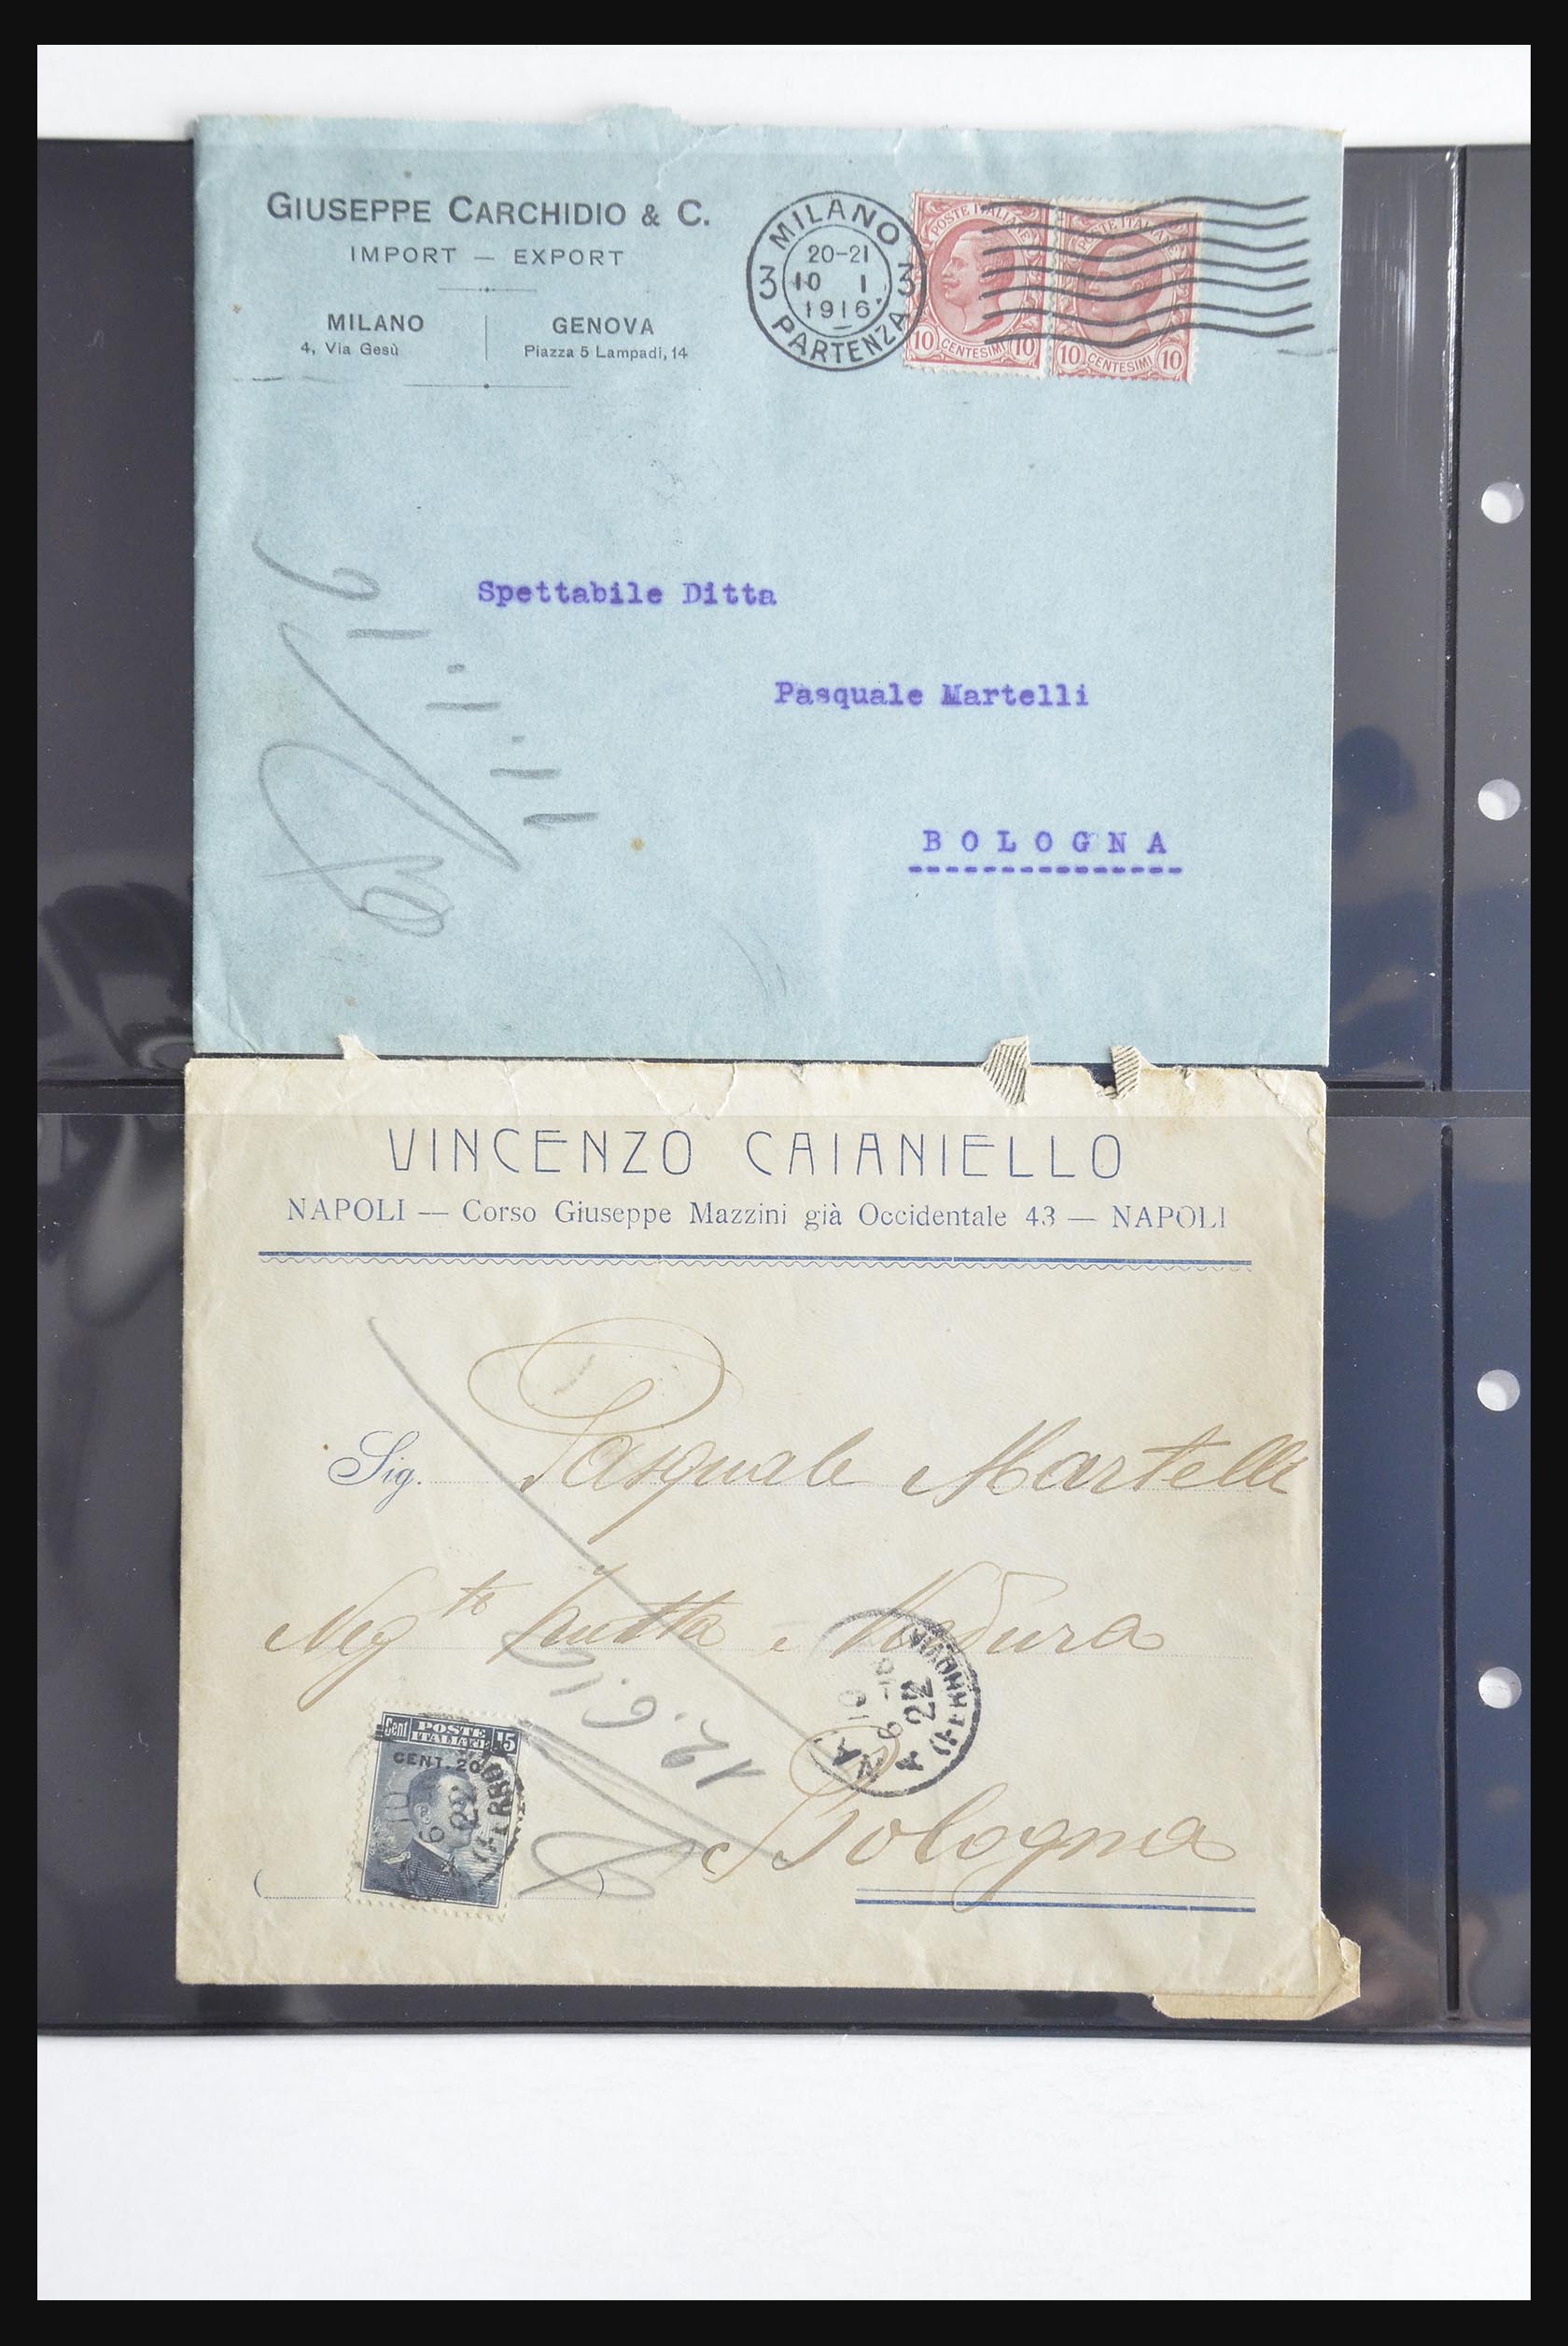 GIUSEPPE CARCHIDIO & C.
IMPORT — EXPORT
MILANO
4, Via Gesù
GENOVA
Piazza 5 Lampadi, 14
MILANO
20-21
3 10 1 3
1916
PARTENZA
POSTE ITALIANE
10 CENTESIMI 10
POSTE ITALIANE
10 CENTESIMI 10
Spettabile Ditta
Pasquale Martelli
BOLOGNA
VINCENZO CAIANIELLO
NAPOLI — Corso Giuseppe Mazzini già Occidentale 43 — NAPOLI
Sig. Pasquale Martelli
Neg.te frutta e Verdura
Bologna
Cent POSTE ITALIANE 15
CENT. 20
22
(FERROVIA)